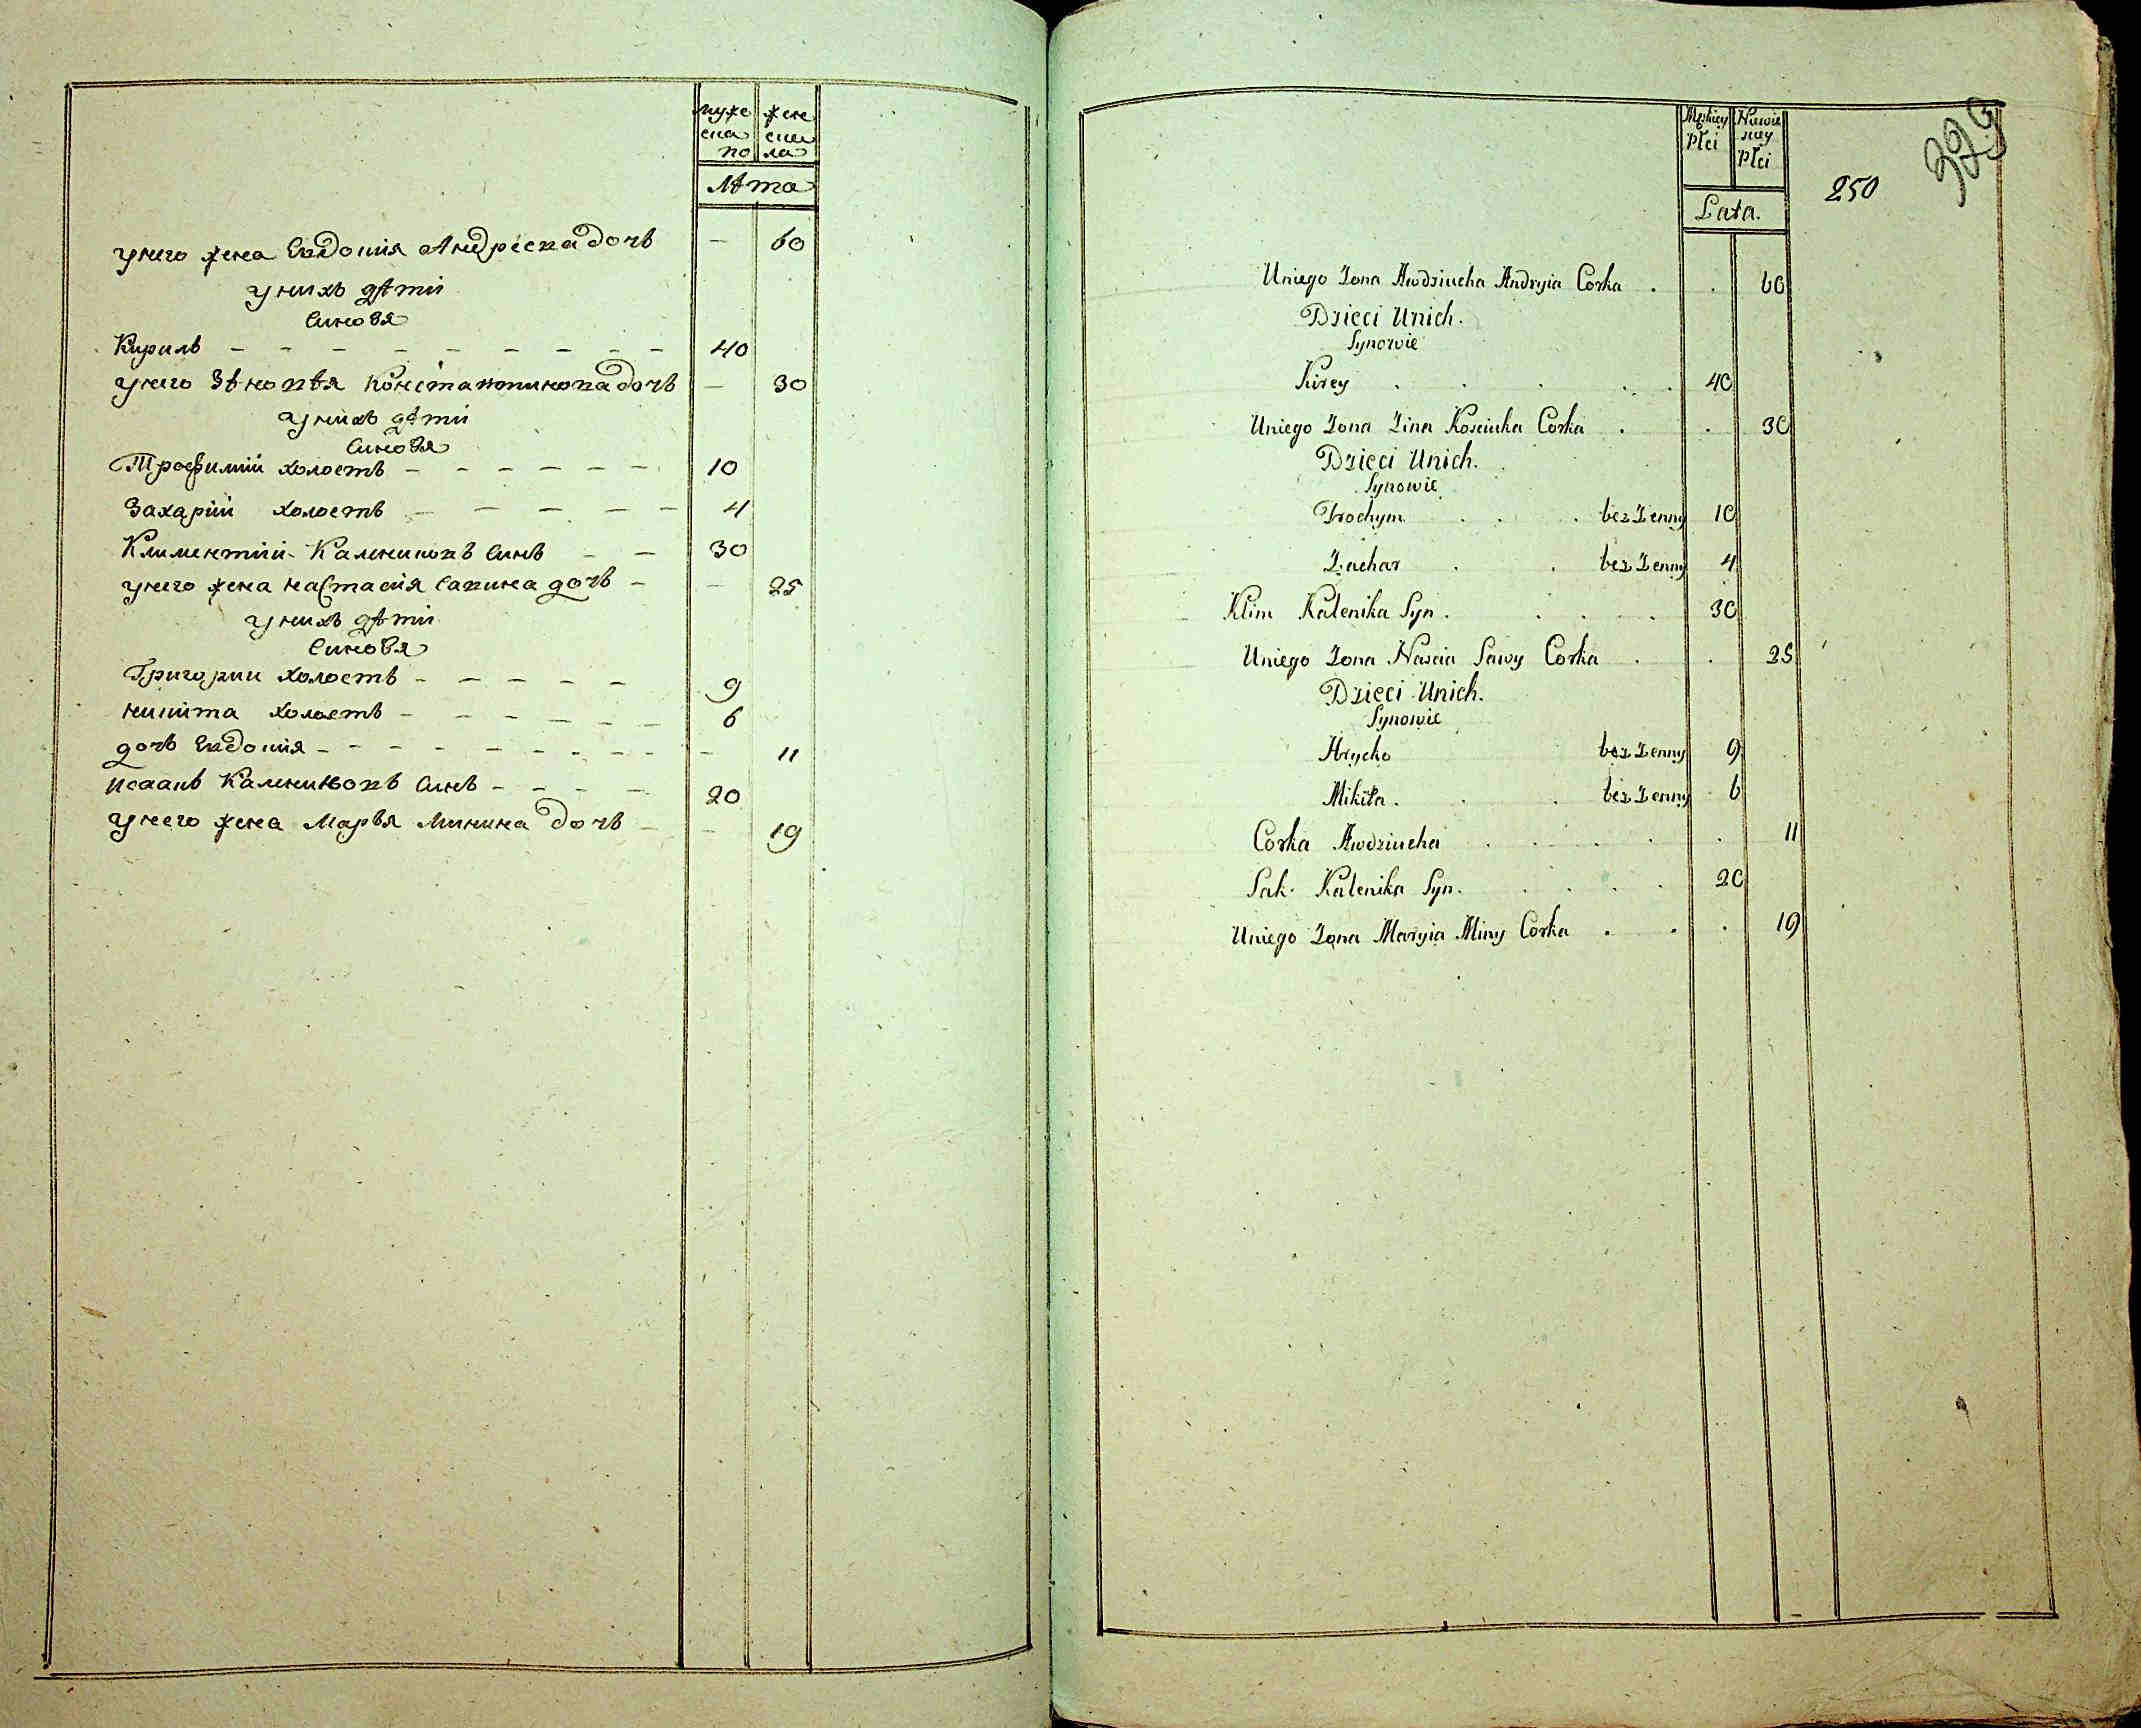 муже жене
ска ска
по ла
Лѣта
унего жена Евдокия Андреева дочь — 60
унихъ дѣти
Синовя
Кирилъ — — — — — — — — 40
унего Зѣновѣя Константинова дочь — 30
унихъ дѣти
Синовя
Трофимий холостъ — — — — — 10
Захарий холостъ — — — — — 4
Климентий Калениковъ Синъ — — 30
унего жена настасия савина дочь — — 25
унихъ дѣти
Синовя
Григории холостъ — — — — — 9
никита холостъ — — — — — 6
дочь Евдокия — — — — — — — — 11
исаакъ Калениковъ Синъ — — — — 20
унего жена Марья Минина дочь — — 19
Męskiey Niewie
Płci sciey
Płci
Lata.
250
Uniego Zona Awdziucha Andryia Corka . . 60
Dzieci Unich.
Synowie
Kirey . . . . . 40
Uniego Zona Zina Kosciuka Corka . . 30
Dzieci Unich.
Synowie
Trochym . . . bez Zenny 10
Zachar . . bez Zenny 4
Klim Kalenika Syn . . . . . 30
Uniego Zona Nascia Sawy Corka . . 25
Dzieci Unich.
Synowie
Hrycko bez Zenny 9
Mikita . . . bez Zenny 6
Corka Awdziucha . . . . . . 11
Sak. Kalenika Syn. . . . . 20
Uniego Zona Maryia Miny Corka . . . 19